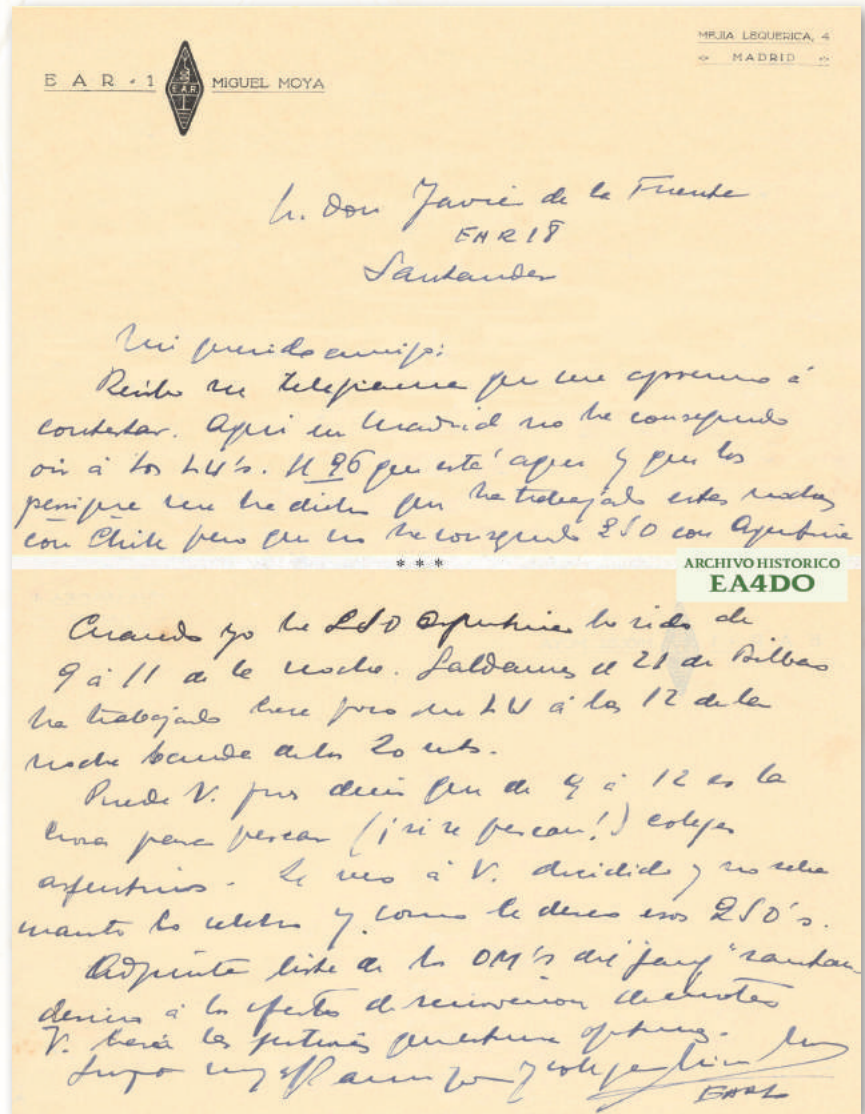 MEJIA LEQUERICA, 4
MADRID
E A R - 1
E.A.R.
MIGUEL MOYA
Sr. Don Javier de la Fuente
EAR18
Santander
Mi querido amigo:
Recibo su telegrama que me apresuro á
contestar. Aqui en Madrid no he conseguido
oir á los LU's. El 96 que está aqui y que los
persigue me ha dicho que ha trabajado estas noches
con Chile pero que no ha conseguido QSO con Argentina
* * *
ARCHIVO HISTORICO
EA4DO
Cuando yo he QSO Argentina ha sido de
9 á 11 de la noche. Saldamos el 21 de Bilbao
ha trabajado hace poco un LU á las 12 de la
noche banda de los 20 mts.
Puede V. pues decir que de 9 á 12 es la
hora para pescar (¡si se pescan!) colegas
argentinos. Le veo á V. decidido y no sabe
cuanto lo celebro y como le deseo esos QSO's.
Adjunta lista de los OM's del "gang" santan
derino á los efectos de
V. hará las
Suyo amigo y colega
EAR1